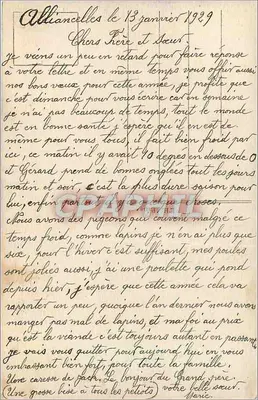 Alliancelles le 13 janvier 1929
Chers Frère et Sœur
Je viens un peu en retard pour faire réponse
à votre lettre et en même temps vous offrir aussi
nos bons vœux pour cette année, je profite que
c'est dimanche pour vous écrire car en semaine
je n'ai pas beaucoup de temps, tout le monde
est en bonne santé j'espère qu'il en est de
même pour vous tous, il fait bien froid par
ici, ce matin il y avait 10 degrés en dessous de 0
et Gérard prend de bonnes onglées tout les jours
matin et soir, c'est la plus dure saison pour
lu, enfin
Nous avons des pigeons que dévores malgré ce
temps froid, comme lapins je n'en ai plus que
six, pour l'hiver c'est suffisant, mes poules
sont jolies aussi, j'ai une poulette qui pond
depuis hier, j'espère que cette année cela va
rapporter un peu, quoique l'an dernier nous avons
manger pas mal de lapins, et ma foi au prix
qu'est la viande c'est toujours autant en passant
je vais vous quitter pour aujourd'hui en vous
embrassant bien fort pour toute la famille.
Une caresse de Le bonjour du Grand père.
Une grosse bise à tous les petiots votre belle sœur
Marie